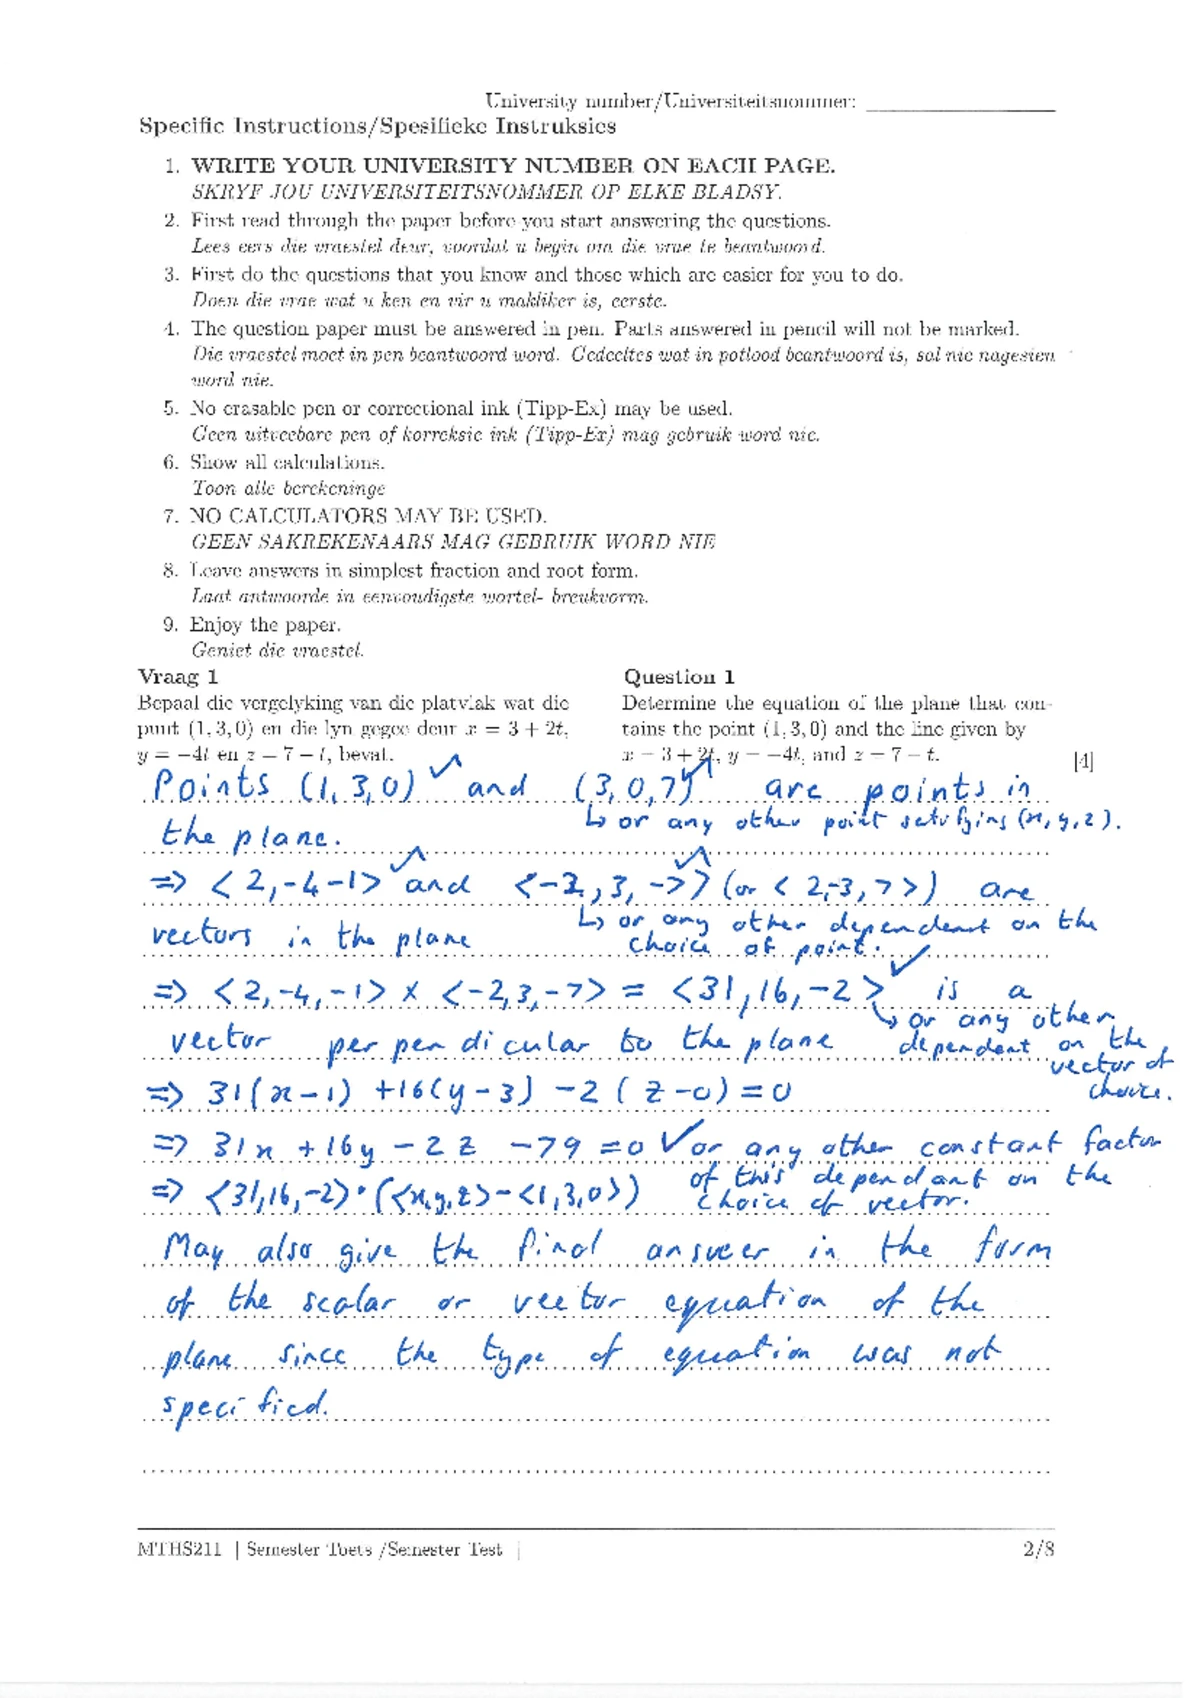 University number/Universiteitsnommer:
Specific Instructions/Spesifieke Instruksies
1. WRITE YOUR UNIVERSITY NUMBER ON EACH PAGE.
SKRYF JOU UNIVERSITEITSNOMMER OP ELKE BLADSY.
2. First read through the paper before you start answering the questions.
Lees eers die vraestel deur, voordat u begin om die vrae te beantwoord.
3. First do the questions that you know and those which are easier for you to do.
Doen die vrae wat u ken en vir u makliker is, eerste.
4. The question paper must be answered in pen. Parts answered in pencil will not be marked.
Die vraestel moet in pen beantwoord word. Gedeeltes wat in potlood beantwoord is, sal nie nagesien
word nie.
5. No erasable pen or correctional ink (Tipp-Ex) may be used.
Geen uitveebare pen of korreksie ink (Tipp-Ex) mag gebruik word nie.
6. Show all calculations.
Toon alle berekeninge
7. NO CALCULATORS MAY BE USED.
GEEN SAKREKENAARS MAG GEBRUIK WORD NIE
8. Leave answers in simplest fraction and root form.
Laat antwoorde in eenvoudigste wortel- breukvorm.
9. Enjoy the paper.
Geniet die vraestel.
Vraag 1
Bepaal die vergelyking van die platvlak wat die
punt (1, 3, 0) en die lyn gegee deur x = 3 + 2t,
y = −4t en z = 7 − t, bevat.
Question 1
Determine the equation of the plane that con-
tains the point (1, 3, 0) and the line given by
x = 3 + 2t, y = −4t, and z = 7 − t.
[4]
Points (1, 3, 0) ✓ and (3, 0, 7) ✓ are points in
↳ or any other point satisfying (x, y, z).
the plane.
⇒ < 2, -4 -1> ✓ and <-2, 3, -7> ✓ (or < 2,-3, 7 >) are
↳ or any other dependent on the
vectors in the plane choice of point.
⇒ < 2, -4, -1> × <-2, 3, -7> = <31, 16, -2> ✓ is a
↳ or any other
vector perpendicular to the plane dependent on the
vector of
⇒ 31(x - 1) + 16(y - 3) - 2 ( z - 0) = 0 choice.
⇒ 31x + 16y - 2z - 79 = 0 ✓ or any other constant factor
of this dependant on the
⇒ <31, 16, -2> • (<x, y, z> - <1, 3, 0>) choice of vector.
May also give the final answer in the form
of the scalar or vector equation of the
plane since the type of equation was not
specified.
MTHS211 | Semester Toets /Semester Test |
2/8